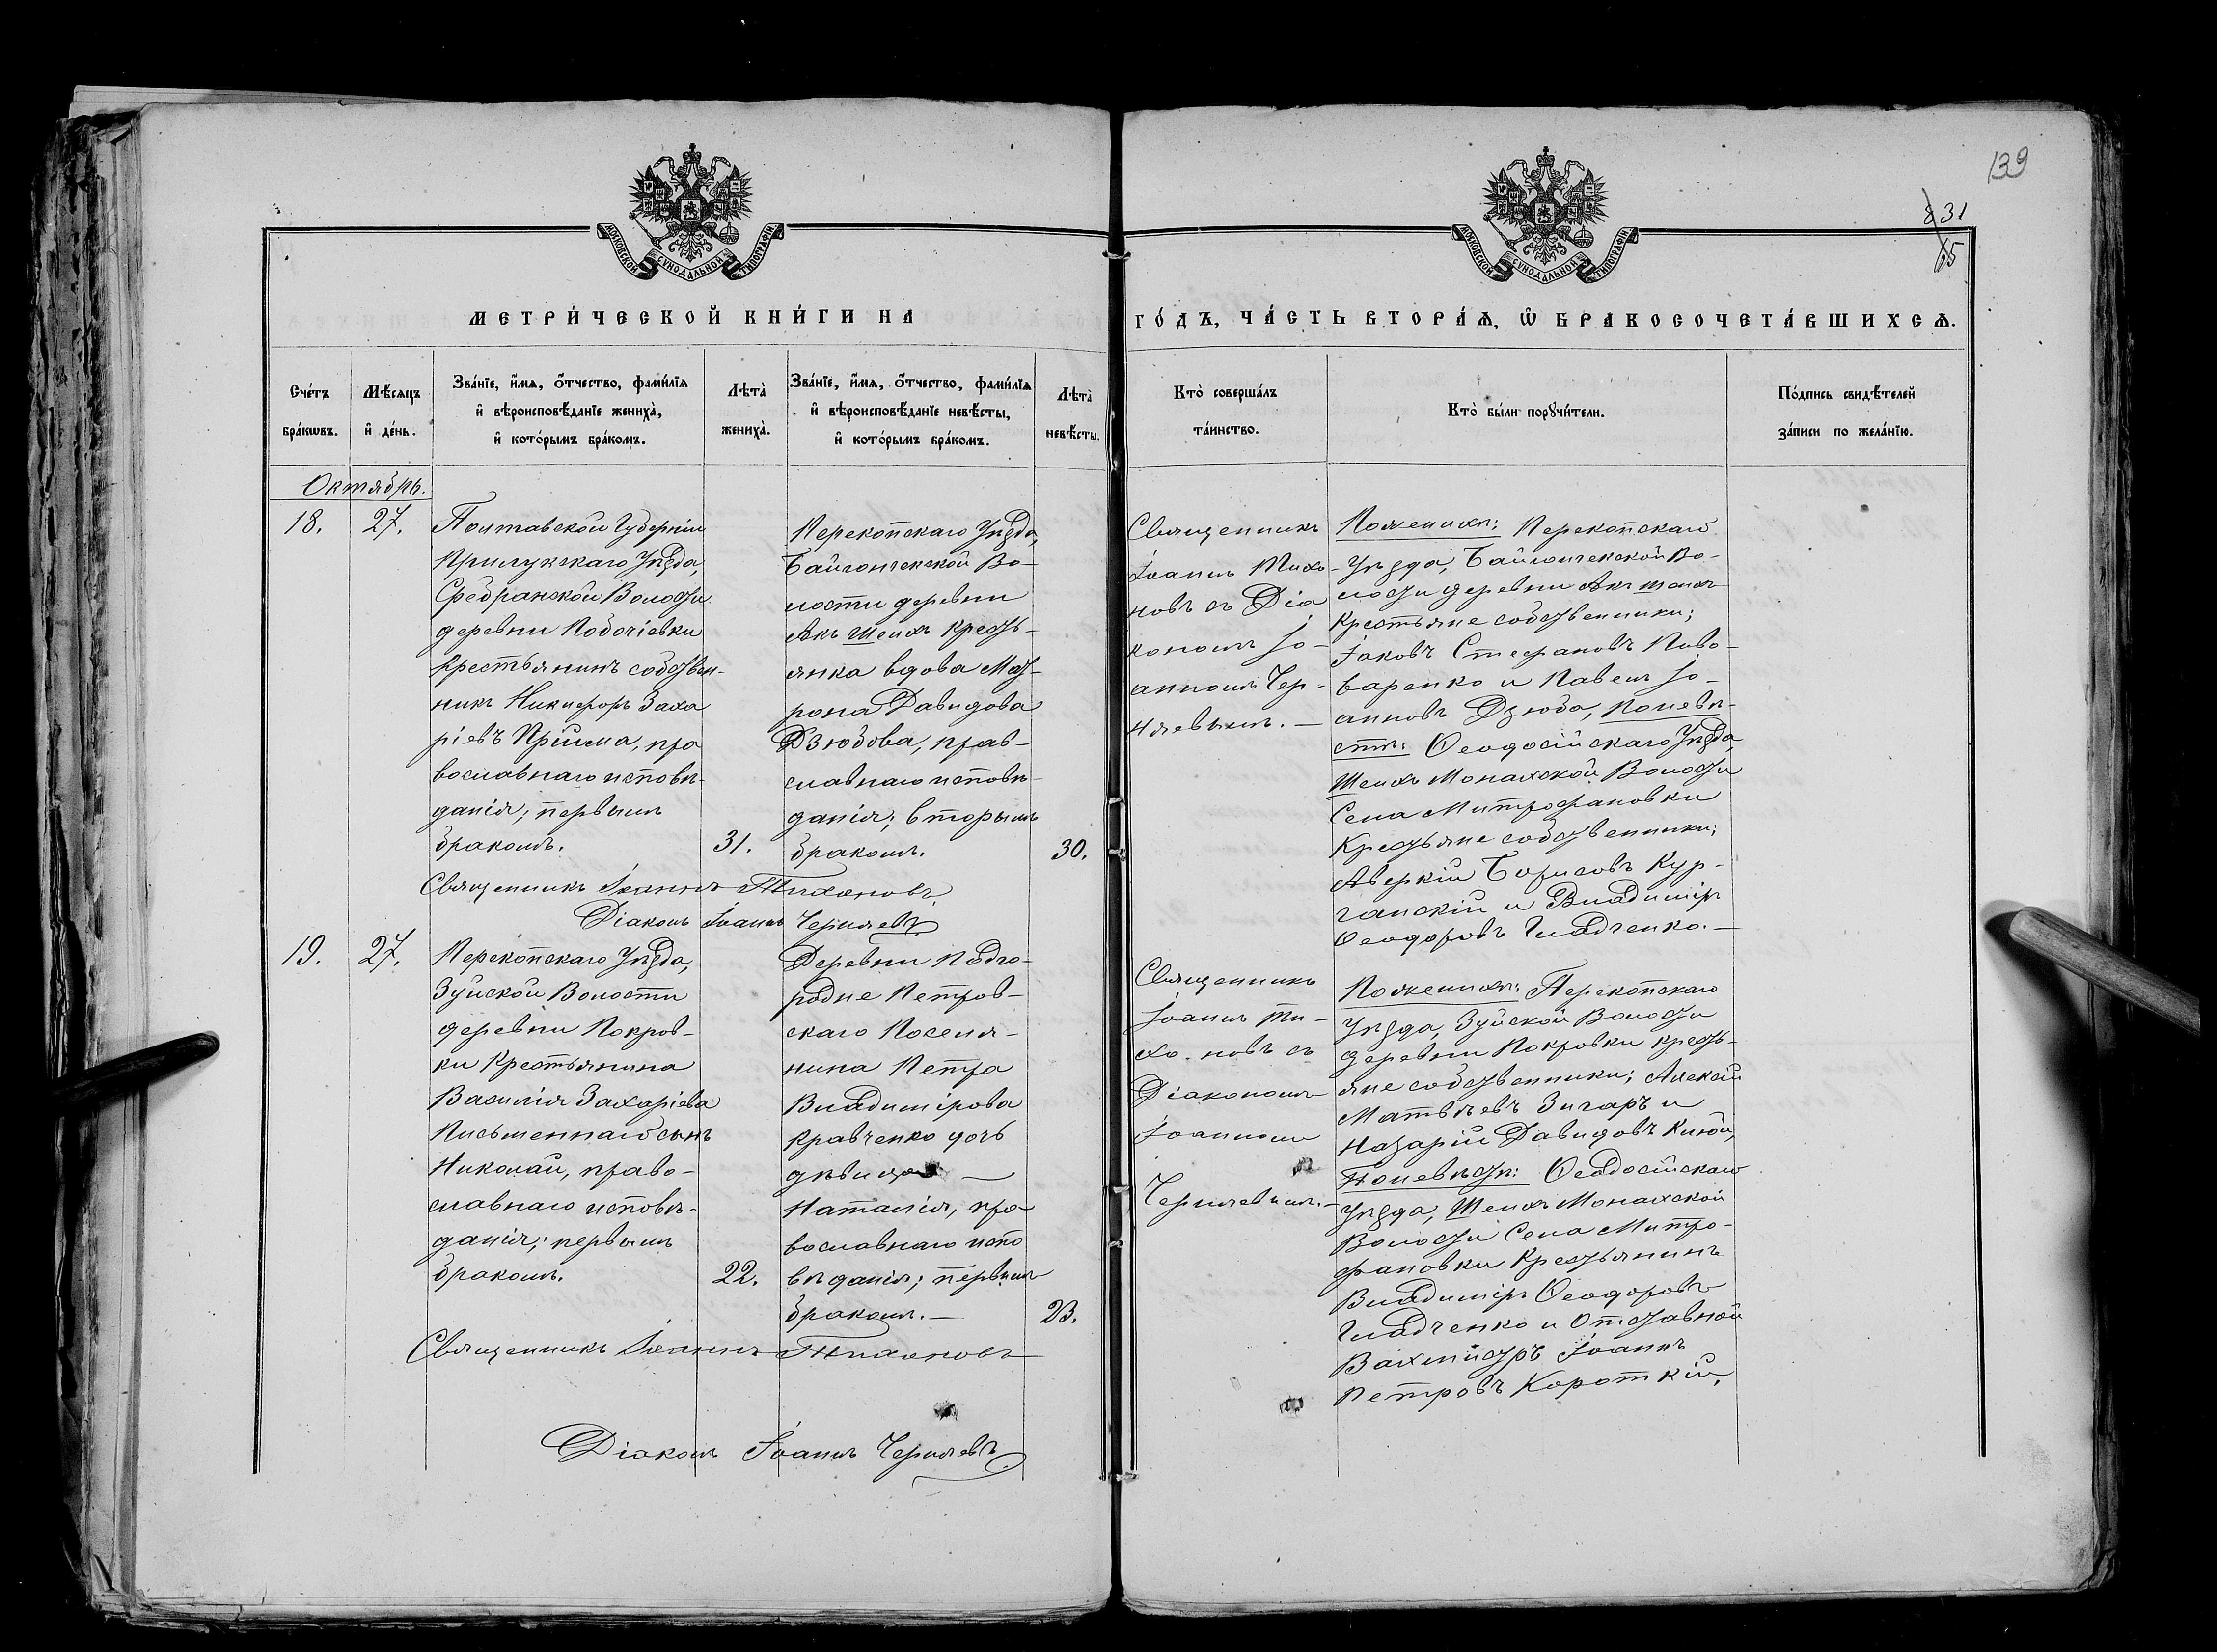 139
831
65
МОСКОВСКОЙ СѴНОДАЛЬНОЙ ТИПОГРАФІИ
МОСКОВСКОЙ СѴНОДАЛЬНОЙ ТИПОГРАФІИ
МЕТРИ́ЧЕСКОЙ КНИ́ГИ НА
ГО́ДЪ, ЧА́СТЬ ВТОРА́Ѧ, Ѡ҆ БРАКОСОЧЕТА́ВШИХСѦ.
Сче́тъ
бра́кѡвъ.
Мѣ́сяцъ
и҆ де́нь.
Зва́нїе, и҆́мѧ, о҆́тчество, фами́лїѧ
и҆ вѣроисповѣ́данїе жениха̀,
и҆ кото́рымъ бра́комъ.
Лѣта̀
жениха̀.
Зва́нїе, и҆́мѧ, о҆́тчество, фами́лїѧ
и҆ вѣроисповѣ́данїе невѣ́сты,
и҆ кото́рымъ бра́комъ.
Лѣта̀
невѣ́сты.
Кто̀ соверша́лъ
та́инство.
Кто̀ бы́ли порꙋчи́тели.
По́дпись свидѣ́телей
за́писи по жела́нїю.
Октябрь.
18.
27.
Полтавской Губерніи
Прилукскаго Уѣзда,
Волости
деревни
Крестьянинъ собствен-
никъ Никифоръ Заха
ріевъ Прійма, пра
вославнаго исповѣ-
данія; первымъ
бракомъ.
31.
Перекопскаго Уѣзда,
Байгончекской Во-
лости деревни
Акъ Шеихъ кресть-
янка вдова Мат-
рона Давидова
Дзюбова, прав-
славнаго исповѣ-
данія; вторымъ
бракомъ.
30.
Священникъ
Іоаннъ Тихо-
новъ съ Діа
кономъ Іо-
анномъ Чер-
няевымъ. —
По женихѣ: Перекопскаго
Уѣзда, Байгончекской Во-
лости деревни Акъ шеихъ
Крестьяне собственники;
Іаковъ Стефановъ Пиво-
варенко и Павелъ Іо-
анновъ Дзюба, по невѣ-
стѣ: Ѳеодосійскаго Уѣзда,
Шеихъ Монахской Волости
Села Митрофановки
Крестьяне собственники;
Аверкій Борисовъ Кур-
ганскій и Владиміръ
Ѳеодоровъ Гладченко. —
Священникъ Іоаннъ Тихоновъ
Діаконъ Іоаннъ Черняевъ
19.
27.
Перекопскаго Уѣзда,
Зуйской Волости
деревни Покров-
ки Крестьянина
Василія Захаріева
Письменнаго сынъ
Николай, право-
славнаго исповѣ-
данія; первымъ
бракомъ.
22.
Деревни Подго-
родне Петров-
скаго Поселя-
нина Петра
Владимірова
Кравченко дочь
дѣвица —
Наталія, пра
вославнаго испо
вѣданія; первымъ
бракомъ. —
23.
Священникъ
Іоаннъ Ти-
хо-новъ съ
Діакономъ
Іоанномъ
Черняевымъ. —
По женихѣ: Перекопскаго
Уѣзда, Зуйской Волости
деревни Покровки кресть-
яне собственники; Алексій
Матвѣевъ Зигаръ и
Назарій Давидовъ
По невѣстѣ: Ѳеодосійскаго
Уѣзда, Шеихъ Монахской
Волости Села Митро-
фановки Крестьянинъ
Владиміръ Ѳеодоровъ
Гладченко и Отставной
Вахмистръ Іоаннъ
Петровъ Короткій,
Священникъ Іоаннъ Тихоновъ
Діаконъ Іоаннъ Черняевъ